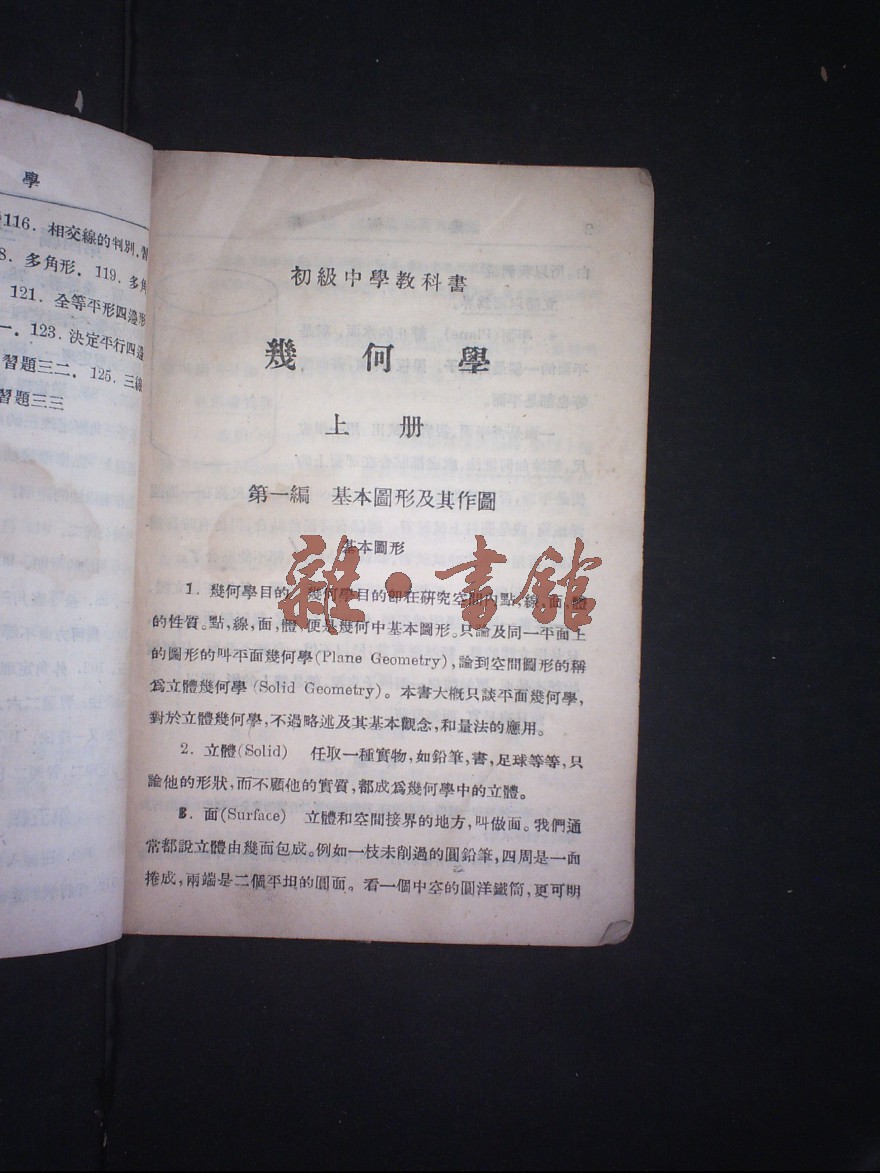 學
116. 相交線的判別. 習
8. 多角形. 119. 多角
121. 全等平形四邊形
一. 123. 決定平行四邊
習題三二. 125. 三線
習題三三
初級中學教科書
幾何學
上册
第一編 基本圖形及其作圖
基本圖形
1. 幾何學目的 幾何學目的卽在硏究空間內點,線,面,體
的性質。點,線,面,體,便是幾何中基本圖形。只論及同一平面上
的圖形的叫平面幾何學(Plane Geometry),論到空間圖形的稱
爲立體幾何學(Solid Geometry)。本書大槪只談平面幾何學,
對於立體幾何學,不過略述及其基本觀念,和量法的應用。
2. 立體(Solid) 任取一種實物,如鉛筆,書,足球等等,只
論他的形狀,而不顧他的實質,都成爲幾何學中的立體。
3. 面(Surface) 立體和空間接界的地方,叫做面。我們通
常都說立體由幾面包成。例如一枝未削過的圓鉛筆,四周是一面
捲成,兩端是二個平坦的圓面。看一個中空的圓洋鐵筒,更可明
雜·書館